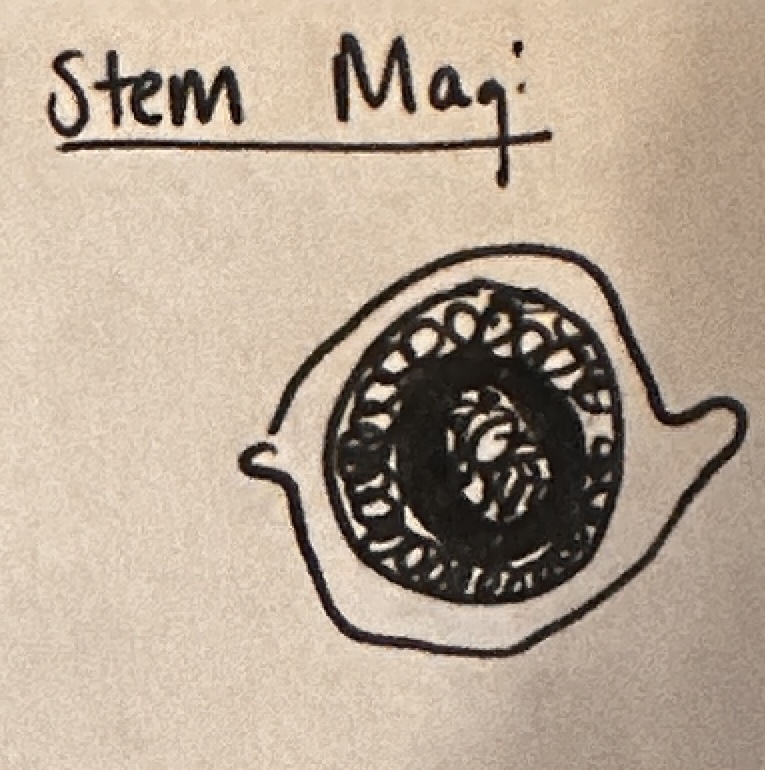 Stem Mag: